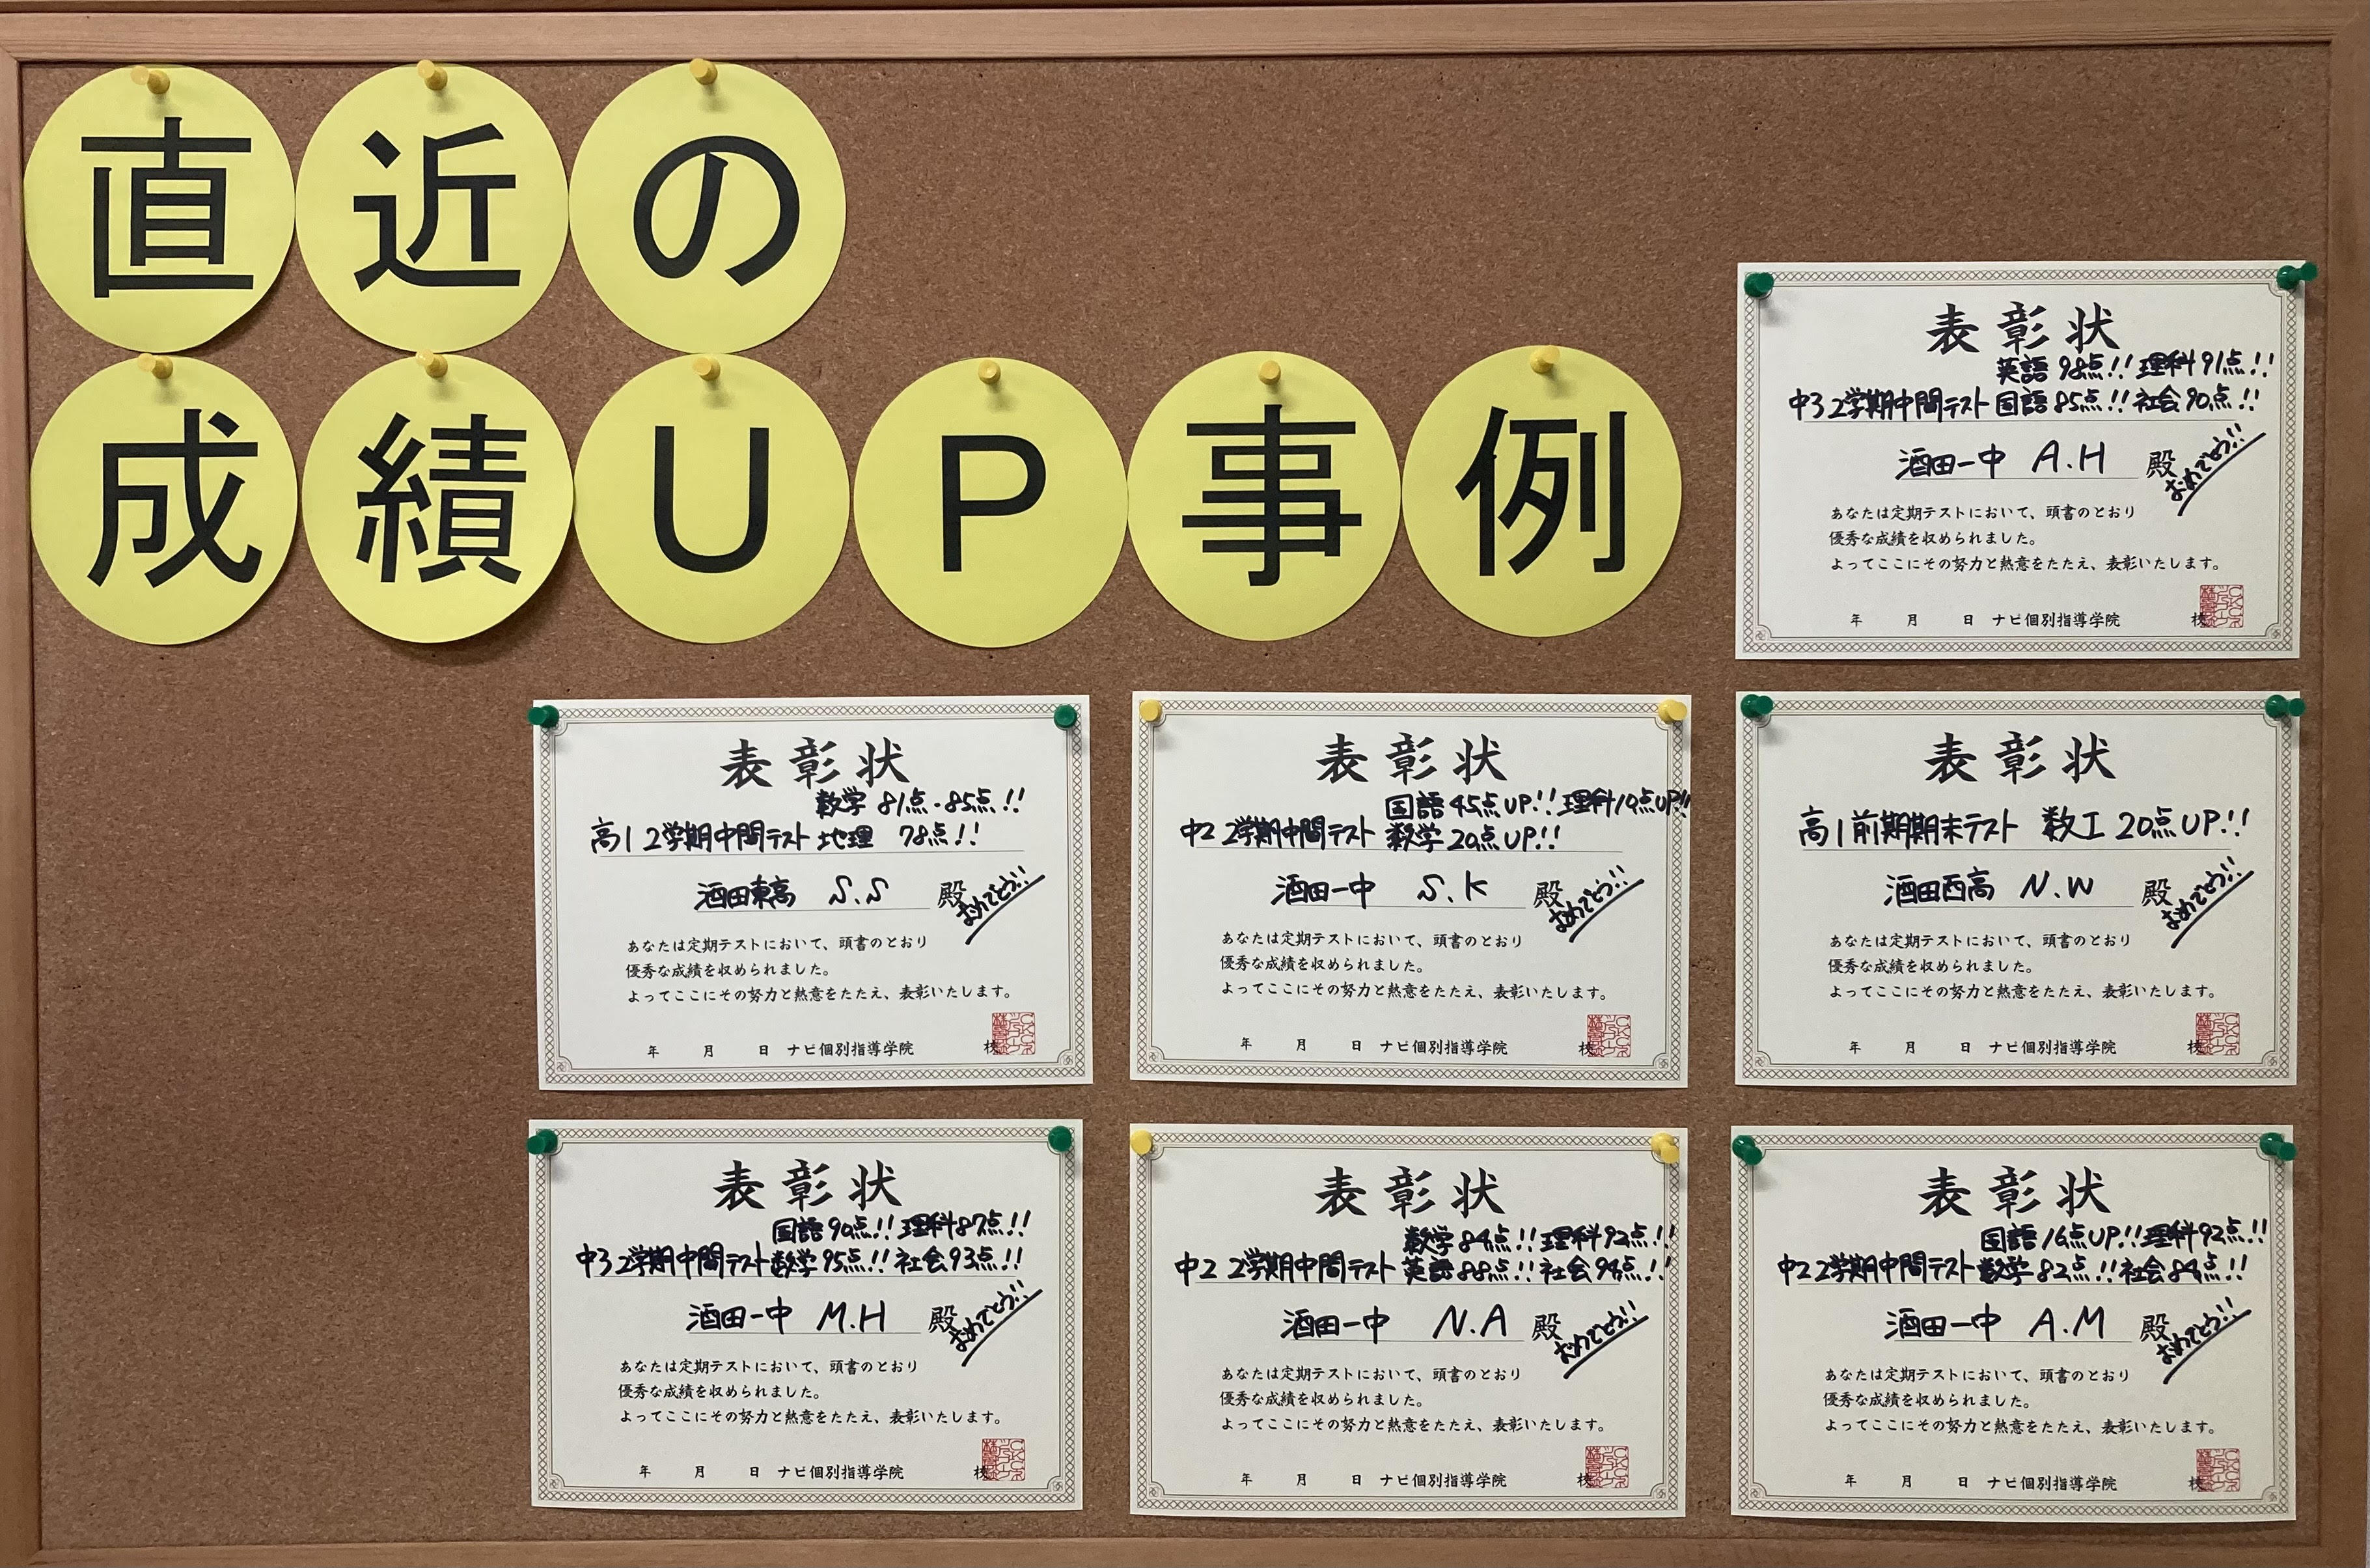 直近の
成績UP事例
表彰状
英語 98点!! 理科 91点!!
中3 2学期中間テスト 国語 85点!! 社会 90点!!
酒田一中 A.H 殿
おめでとう!!
あなたは定期テストにおいて、頭書のとおり
優秀な成績を収められました。
よってここにその努力と熱意をたたえ、表彰いたします。
年 月 日 ナビ個別指導学院 校
表彰状
数学 81点・85点!!
高1 2学期中間テスト 地理 78点!!
酒田東高 S.S 殿
おめでとう!!
あなたは定期テストにおいて、頭書のとおり
優秀な成績を収められました。
よってここにその努力と熱意をたたえ、表彰いたします。
年 月 日 ナビ個別指導学院 校
表彰状
国語 45点UP!! 理科10点UP!!
中2 2学期中間テスト 数学 20点UP!!
酒田一中 S.K 殿
おめでとう!!
あなたは定期テストにおいて、頭書のとおり
優秀な成績を収められました。
よってここにその努力と熱意をたたえ、表彰いたします。
年 月 日 ナビ個別指導学院 校
表彰状
高1前期期末テスト 数I 20点UP!!
酒田西高 N.W 殿
おめでとう!!
あなたは定期テストにおいて、頭書のとおり
優秀な成績を収められました。
よってここにその努力と熱意をたたえ、表彰いたします。
年 月 日 ナビ個別指導学院 校
表彰状
国語 90点!! 理科87点!!
中3 2学期中間テスト 数学 95点!! 社会 93点!!
酒田一中 M.H 殿
おめでとう!!
あなたは定期テストにおいて、頭書のとおり
優秀な成績を収められました。
よってここにその努力と熱意をたたえ、表彰いたします。
年 月 日 ナビ個別指導学院 校
表彰状
数学 84点!! 理科 92点!!
中2 2学期中間テスト 英語 88点!! 社会 94点!!
酒田一中 N.A 殿
おめでとう!!
あなたは定期テストにおいて、頭書のとおり
優秀な成績を収められました。
よってここにその努力と熱意をたたえ、表彰いたします。
年 月 日 ナビ個別指導学院 校
表彰状
国語 16点UP!! 理科 92点!!
中2 2学期中間テスト 数学 82点!! 社会 84点!!
酒田一中 A.M 殿
おめでとう!!
あなたは定期テストにおいて、頭書のとおり
優秀な成績を収められました。
よってここにその努力と熱意をたたえ、表彰いたします。
年 月 日 ナビ個別指導学院 校